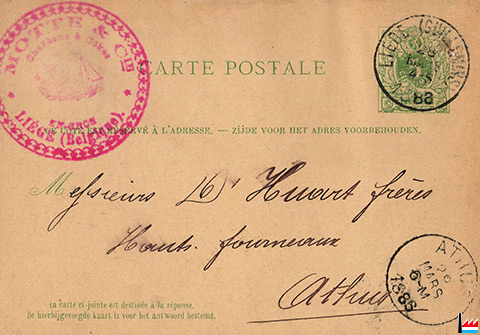 MOTTE & Cie
Charbons & Cokes
EN GROS
LIÉGE (Belgique).
CARTE POSTALE
LIÉGE (GUILLEMINS)
MARS
CE CÔTÉ EST RÉSERVÉ À L'ADRESSE. — ZIJDE VOOR HET ADRES VOORBEHOUDEN.
Messieurs D'Huart frères
Hauts-fourneaux
Athus
ATHUS
26
MARS
1886
La carte ci-jointe est destinée à la réponse.
De hierbijgevoegde kaart is voor het antwoord bestemd.